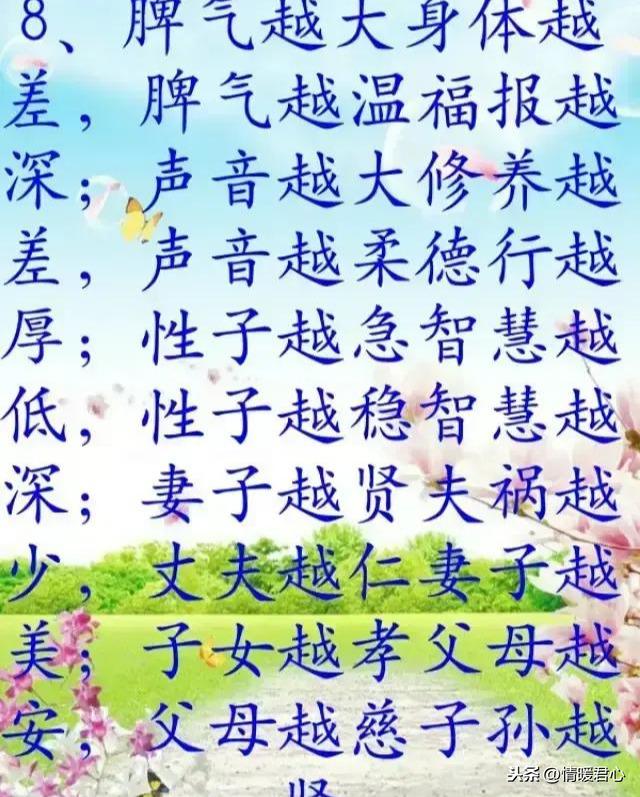 8、脾气越大身体越
差，脾气越温福报越
深；声音越大修养越
差，声音越柔德行越
厚；性子越急智慧越
低，性子越稳智慧越
深；妻子越贤夫祸越
少，丈夫越仁妻子越
美；子女越孝父母越
安，父母越慈子孙越
贤
头条@情暖君心